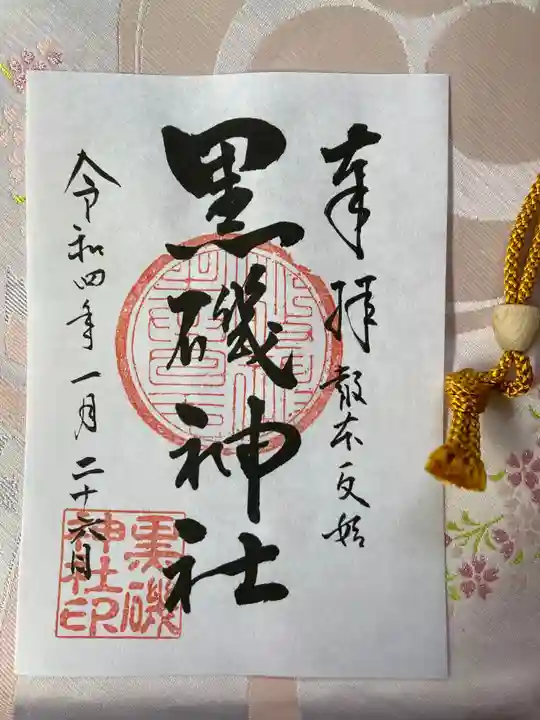 奉拝 敬本反始
黒磯神社
令和四年一月二十六日
黒磯
神社印